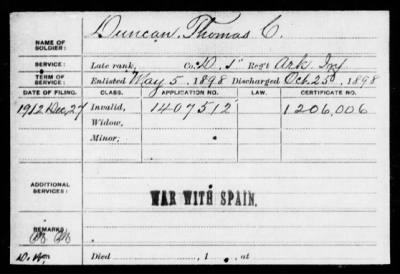 NAME OF SOLDIER: Duncan, Thomas C.
SERVICE: Late rank, Co. D. 1" Reg't Ark. Inf
TERM OF SERVICE: Enlisted May 5, 1898 Discharged Oct. 25, 1898
DATE OF FILING. CLASS. APPLICATION NO. LAW. CERTIFICATE NO.
1912 Dec. 27 Invalid, 1407512 1206,006
Widow,
Minor,
ADDITIONAL SERVICES:
WAR WITH SPAIN.
REMARKS:
Died , 1 , at